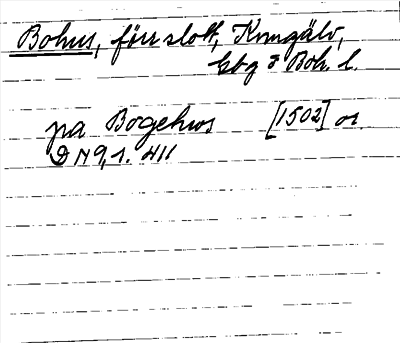 Bohus, förr slott, Kungälv,
Gbg o Boh. l.
pa Bogehws [1502] or.
DN 9,1. 411